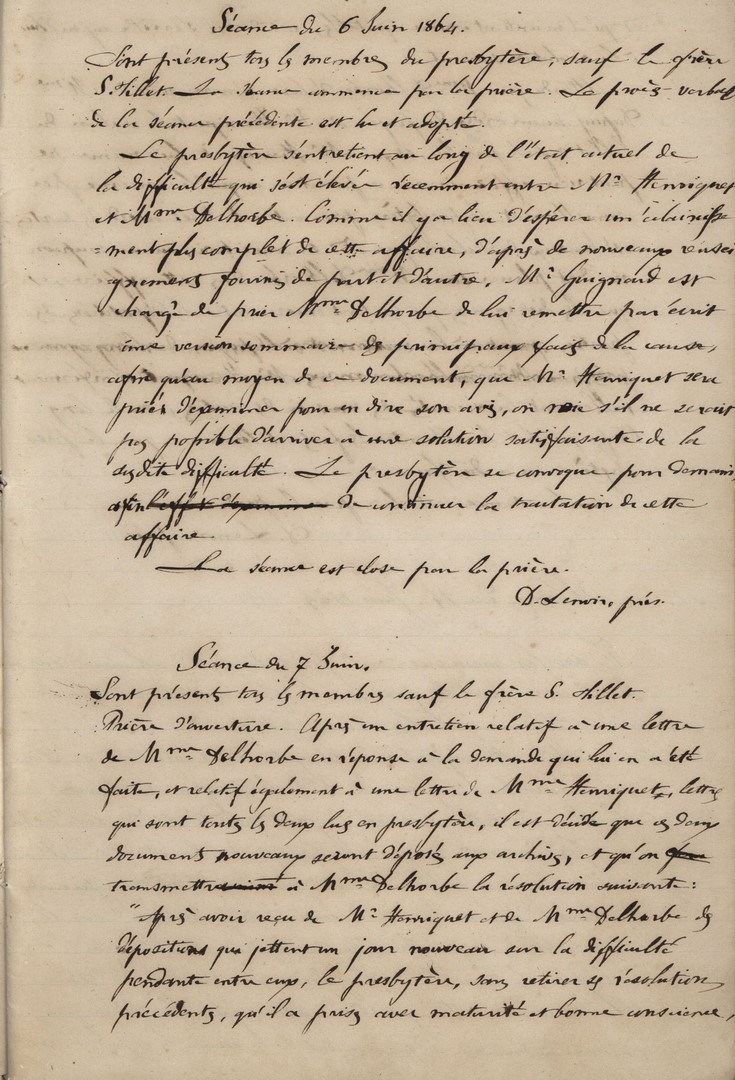 Séance du 6 Juin 1864.
Sont présents tous les membres du presbytère, sauf le frère
S. Tillet. La séance commence par la prière. Le procès-verbal
de la séance précédente est lu et adopté.
Le presbytère s'entretient au long de l'état actuel de
la difficulté qui s'est élevée récemment entre Mr Henriquet
et Mme Delhorbe. Comme il y a lieu d'espérer un éclaircisse
=ment plus complet de cette affaire, d'après de nouveaux rensei
gnements fournis de part et d'autre, Mr Guignard est
chargé de prier Mme Delhorbe de lui remettre par écrit
une version sommaire des principaux faits de la cause,
afin qu'au moyen de ce document, que Mr Henriquet sera
prié d'examiner pour en dire son avis, on voie s'il ne serait
pas possible d'arriver à une solution satisfaisante de la
susdite difficulté. Le presbytère se convoque pour demain,
afin l'effet d'examiner de continuer la traitation de cette
affaire.
La séance est close par la prière.
D. Lenoir, prés.
Séance du 7 Juin.
Sont présents tous les membres sauf le frère S. Tillet.
Prière d'ouverture. Après un entretien relatif à une lettre
de Mme Delhorbe en réponse à la demande qui lui en a été
faite, et relatif également à une lettre de Mme Henriquet, lettres
qui sont toutes les deux lues en presbytère, il est décidé que ces deux
documents nouveaux seront déposés aux archives, et qu'on
transmettra à Mme Delhorbe la résolution suivante:
"Après avoir reçu de Mr Henriquet et de Mme Delhorbe des
dépositions qui jettent un jour nouveau sur la difficulté
pendante entre eux, le presbytère, sans retirer ses résolutions
précédentes, qu'il a prises avec maturité et bonne conscience,